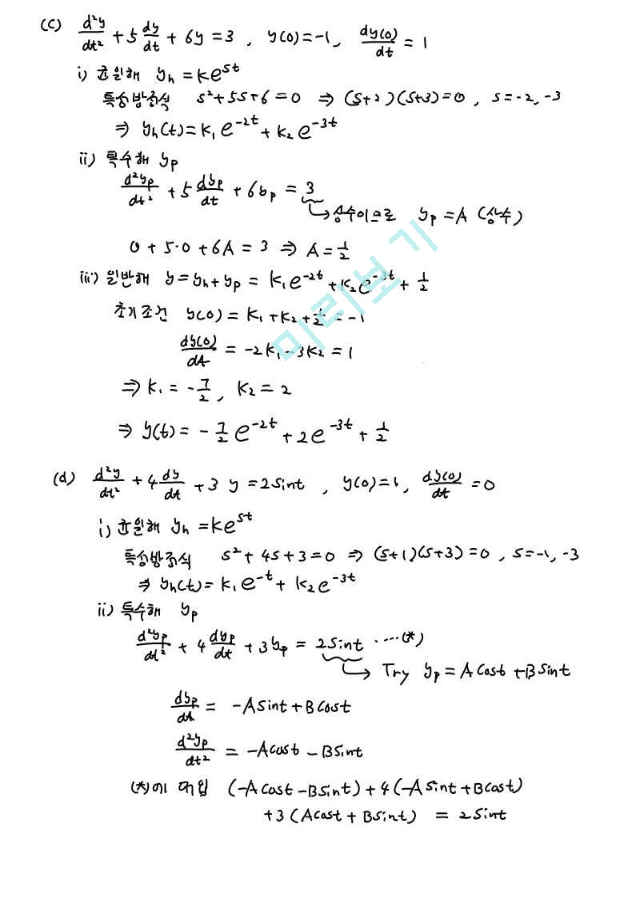 (c) d²y/dt² + 5 dy/dt + 6y = 3 , y(0) = -1, dy(0)/dt = 1
i) 균일해 yh = ke^st
특성방정식 s² + 5s + 6 = 0 ⇒ (s+2)(s+3) = 0 , s = -2, -3
⇒ yh(t) = k₁e^-2t + k₂e^-3t
ii) 특수해 yp
d²yp/dt² + 5 dyp/dt + 6yp = 3
↳ 상수이므로 yp = A (상수)
0 + 5·0 + 6A = 3 ⇒ A = 1/2
iii) 일반해 y = yh + yp = k₁e^-2t + k₂e^-3t + 1/2
초기조건 y(0) = k₁ + k₂ + 1/2 = -1
dy(0)/dt = -2k₁ - 3k₂ = 1
⇒ k₁ = -7/2 , k₂ = 2
⇒ y(t) = -7/2 e^-2t + 2e^-3t + 1/2
미리보기
(d) d²y/dt² + 4 dy/dt + 3y = 2sint , y(0) = 1, dy(0)/dt = 0
i) 균일해 yh = ke^st
특성방정식 s² + 4s + 3 = 0 ⇒ (s+1)(s+3) = 0 , s = -1, -3
⇒ yh(t) = k₁e^-t + k₂e^-3t
ii) 특수해 yp
d²yp/dt² + 4 dyp/dt + 3yp = 2sint ····(*)
↳ Try yp = Acost + Bsint
dyp/dt = -Asint + Bcost
d²yp/dt² = -Acost - Bsint
(*)에 대입 (-Acost - Bsint) + 4(-Asint + Bcost)
+3(Acost + Bsint) = 2sint